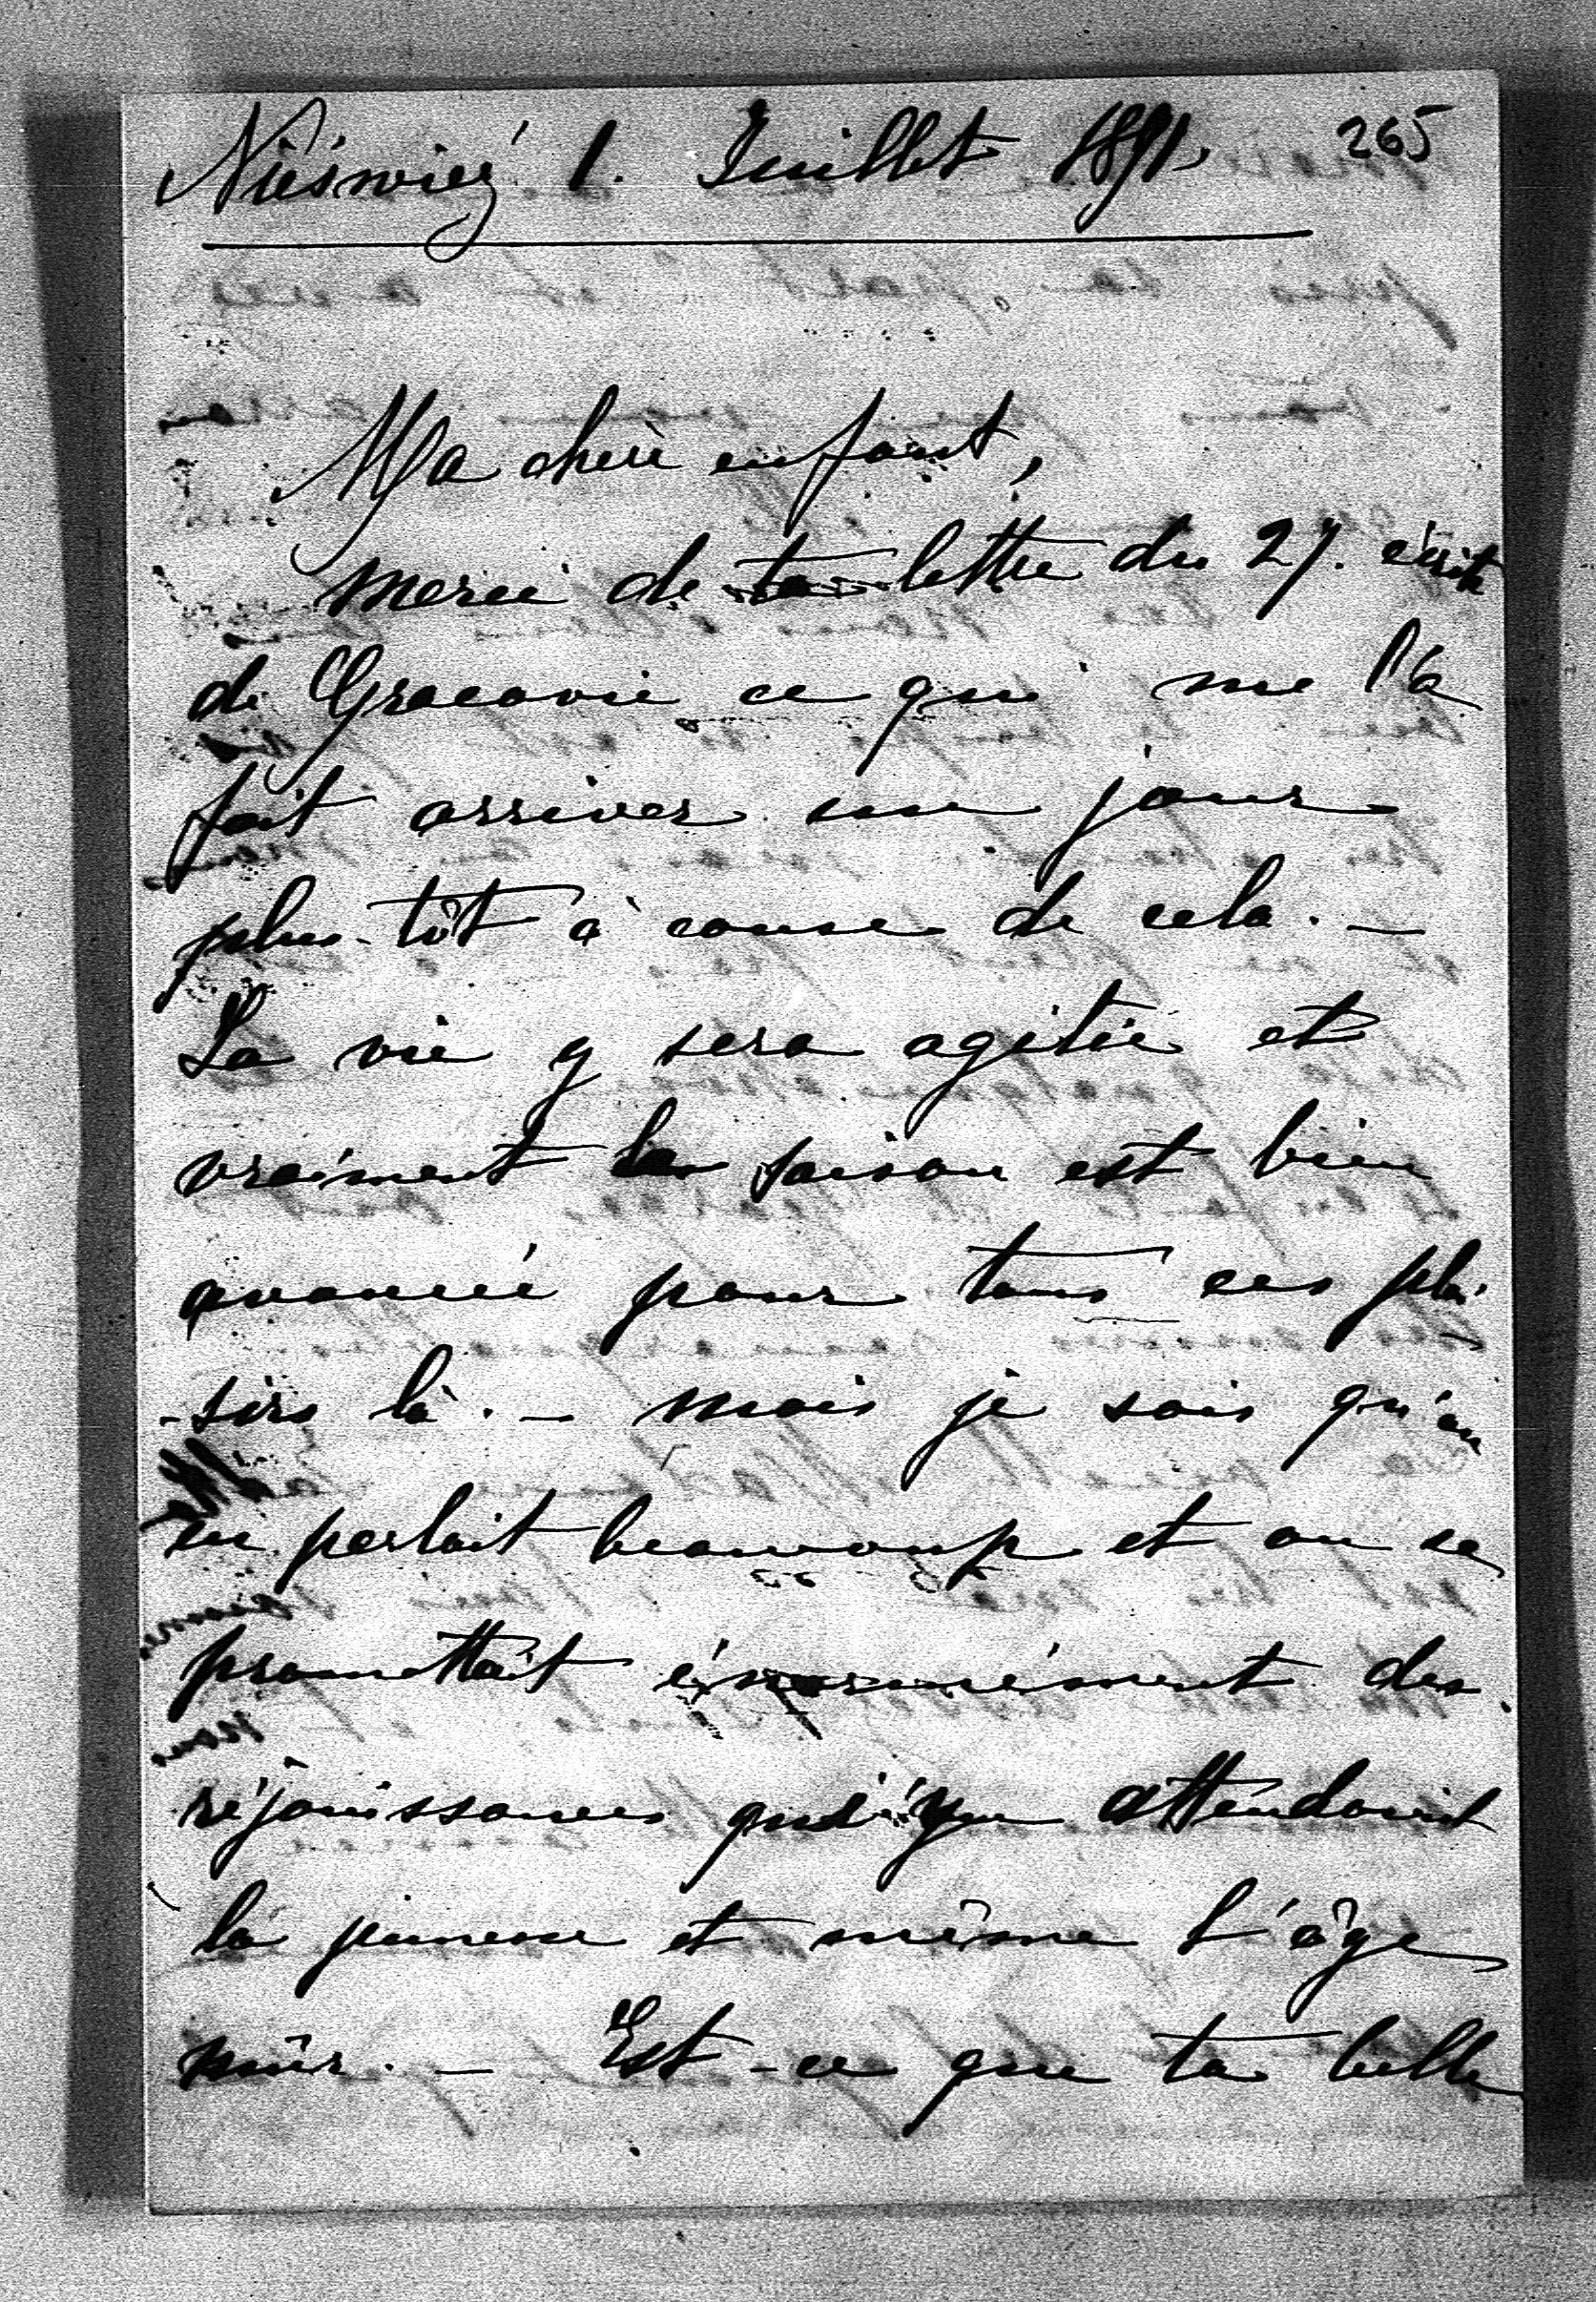 Nieśwież 1. Juillet 1891. 265
Ma chère enfant,
merci de ta lettre du 27. écrite
de Cracovie ce qui me l'a
fait arriver un jour
plus-tôt à cause de cela. —
La vie y sera agitée et
vraiment la saison est bien
avancée pour tous ces plai-
-sirs là. — mais je sais qu'on
en parlait beaucoup et on se
promettait énormément des
réjouissances attendant
la jeunesse et même l'âge
mûr. — Est-ce que ta belle